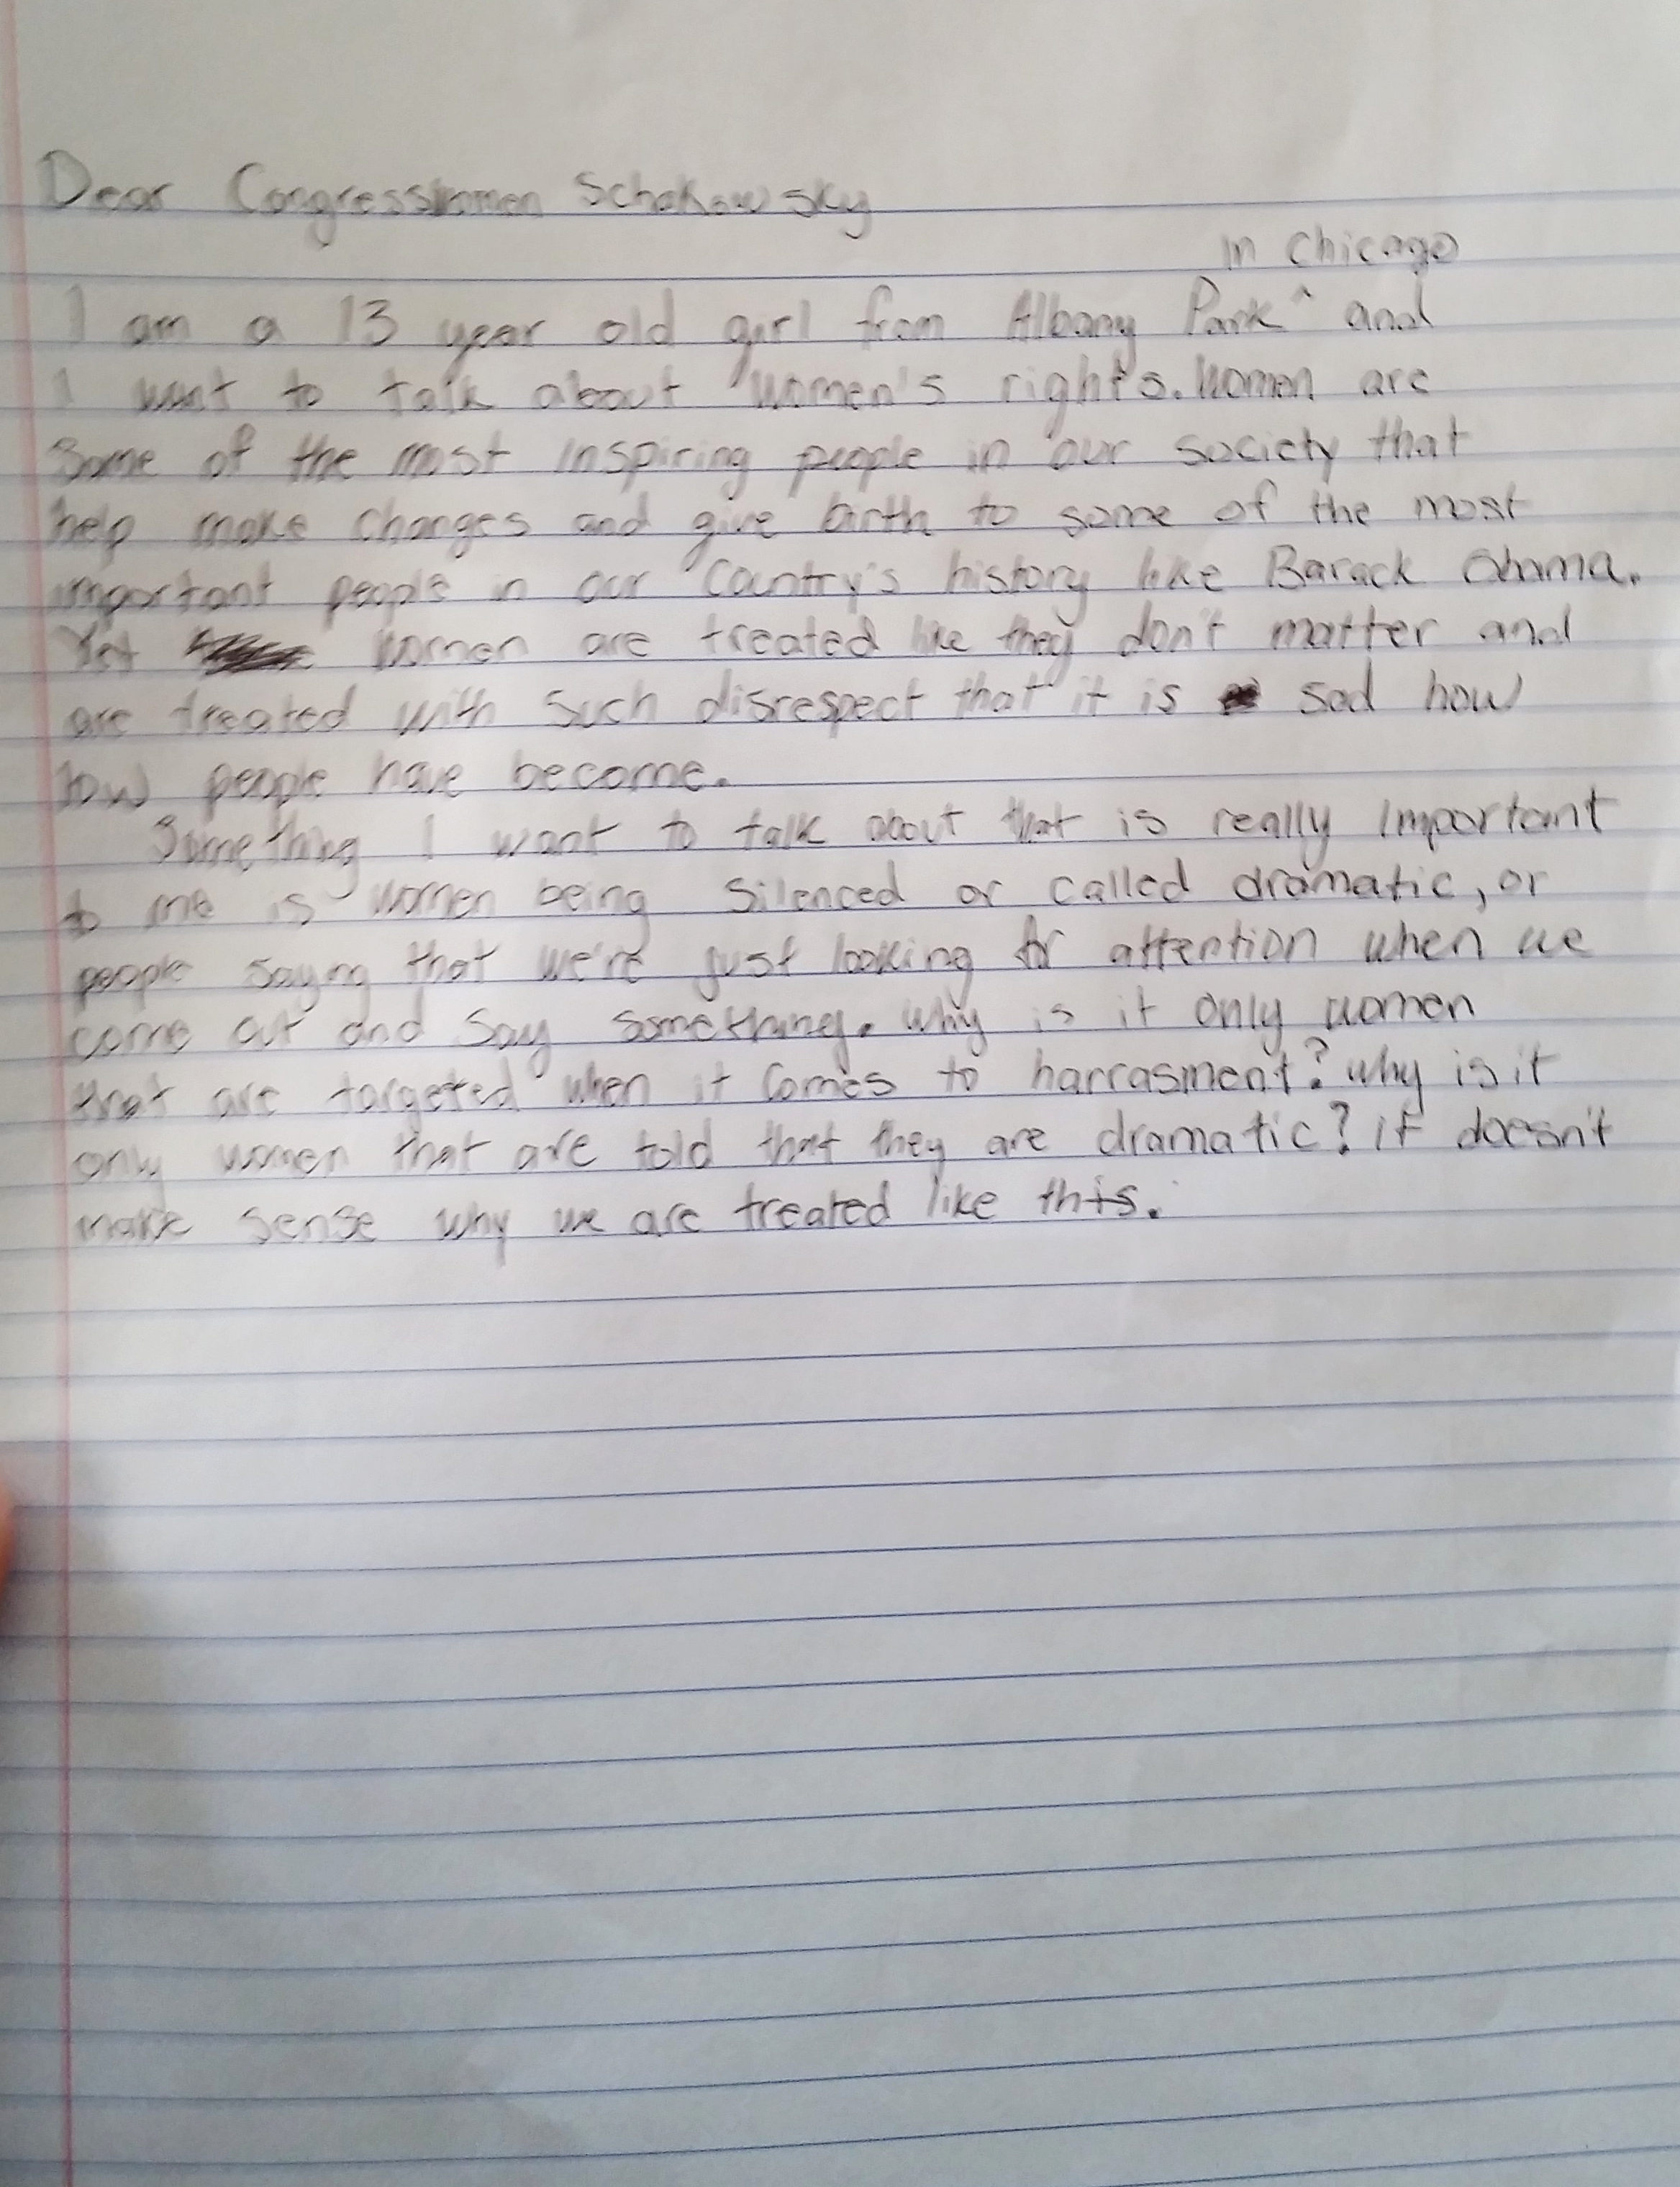 Dear Congresswomen Schakowsky
in Chicago
I am a 13 year old girl from Albany Park ^ and
I want to talk about women's rights. Women are
Some of the most inspiring people in our society that
help make changes and give birth to some of the most
important people in our Country's history like Barack Obama.
Yet women are treated like they don't matter and
are treated with such disrespect that it is sad how
low people have become.
Something I want to talk about that is really important
to me is women being silenced or called dramatic, or
people saying that we're just looking for attention when we
come out and say something. Why is it only women
that are targeted when it comes to harrasment? why is it
only women that are told that they are dramatic? it doesn't
make sense why we are treated like this.